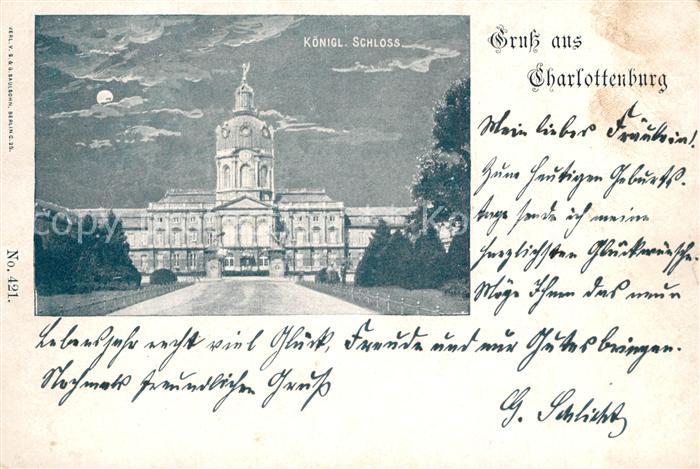 VERL. V. S & G SAULSOHN, BERLIN C. 25.
No. 421.
KÖNIGL. SCHLOSS.
Gruß aus
Charlottenburg
Mein liebes Fräulein!
Zum heutigen Geburts-
tage sende ich meine
herzlichsten Glückwünsche.
Möge Ihnen das neue
Lebensjahr recht viel Glück, Freude und nur Gutes bringen.
Nochmals freundlichen Gruß
G. Schlicht